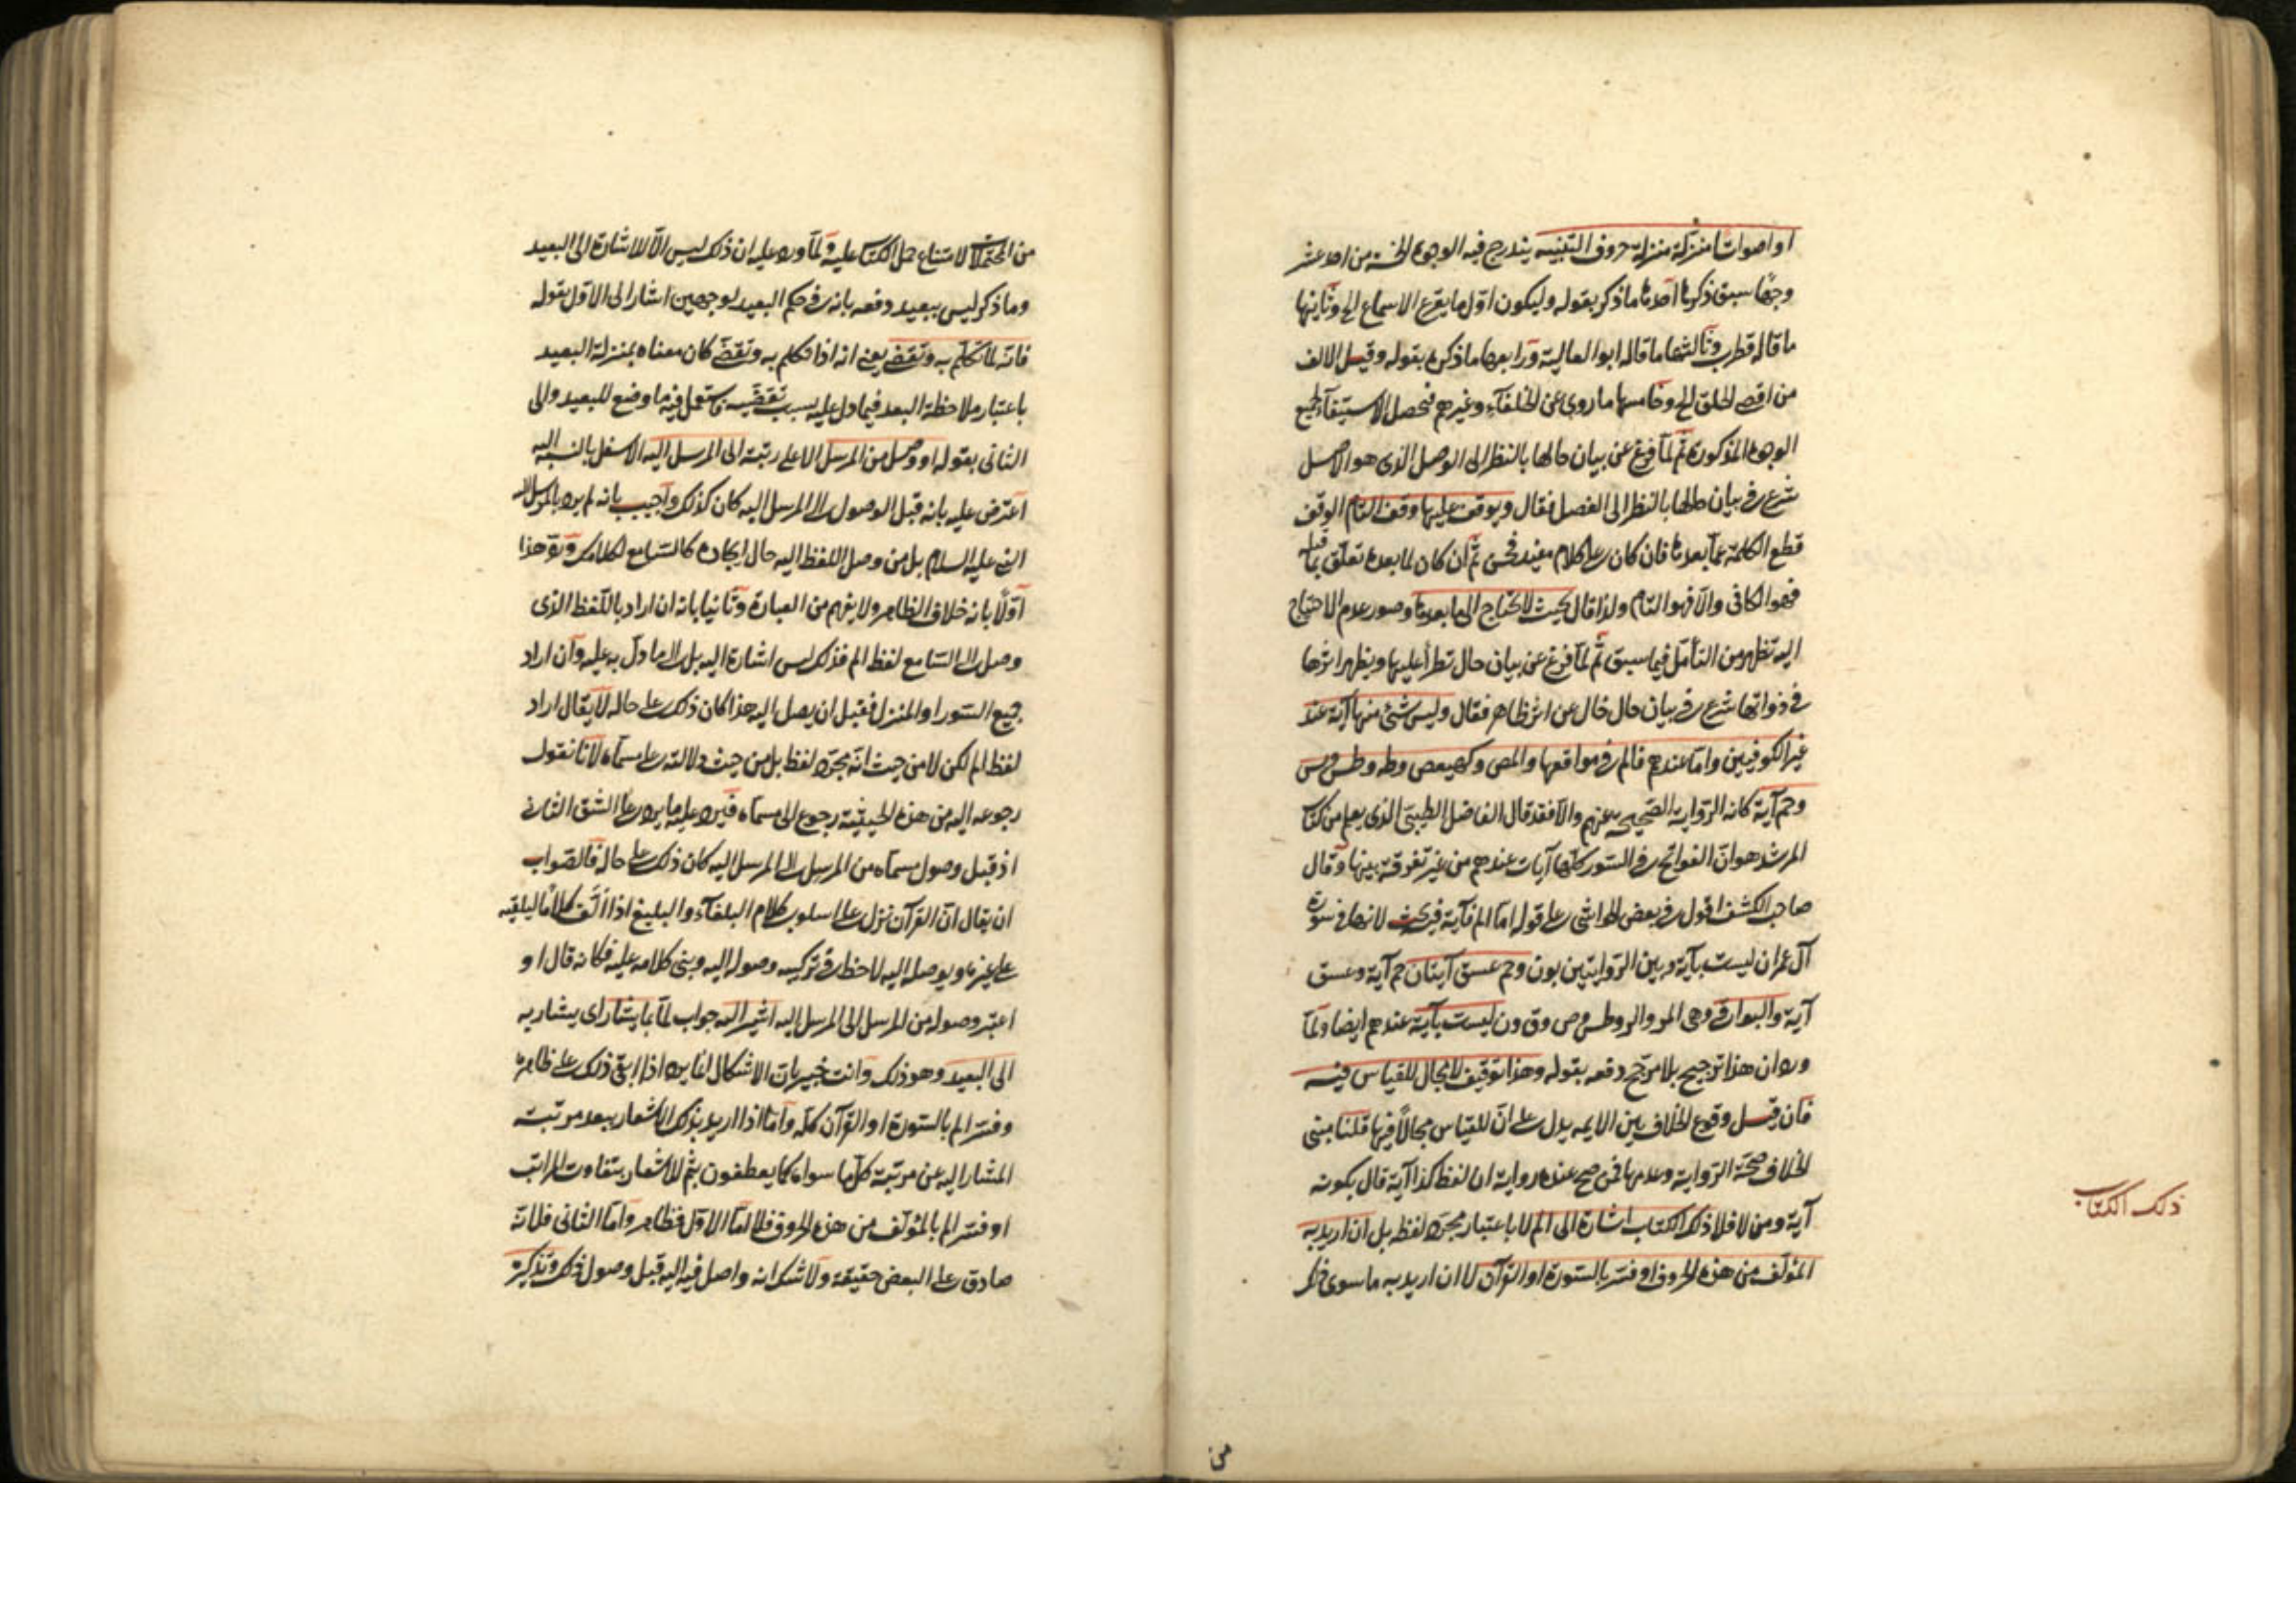 او اصواتا منزلة منزلة حروف التنبيه يندرج فيه الوجوه الخمسة من احد عشر
وجها سبق ذكرها احدها ما ذكر بقوله وليكون اول ما يقرع الاسماع الخ وثانيها
ما قاله قطرب وثالثها ما قاله ابو العالية ورابعها ما ذكره بقوله وقيل الالف
من اقصى الحلق الخ وخامسها ما روى عن الخلفآء وغيرهم فحصل الاستيفآء لجميع
الوجوه المذكورة ثم لمّا فرغ عن بيان حالها بالنظر الى الوصل الذى هو الاصل
شرع فى بيان حالها بالنظر الى الفصل فقال ويوقف عليها وقف التام الوقف
قطع الكلمة عمّا بعدها فان كان على كلام مفيد فحسن ثم ان كان لما بعده تعلق بما قبله
فهو الكافى والّا فهو التام ولذا قال بحيث لا تحتاج الى ما بعدها وصور عدم الاحتياج
اليه تظهر من التأمل فيما سبق ثم لمّا فرغ عن بيان حال تطرأ عليها ويظهر اثرها
فى ذواتها شرع فى بيان حال خال عن اثر ظاهر فقال وليس شئ منها آية عند
غير الكوفيين وامّا عندهم فالم فى مواقعها والمص وكهيعص وطه وطسم ويس
وحم آية كانه الرّواية الصّحيحة عنهم والّا فقد قال الفاضل الطيبى الذى يعلم من كتاب
المرشد هو انّ الفواتح فى السّور كلّها آيات عندهم من غير تفرقة بينها وقال
صاحب الكشف اقول فى بعض الحواشى على قوله امّا الم فآية فيه بحث لانها فى سورة
آل عمران ليست بآية وبين الرّوايتين بون وحم عسق آيتان حم آية وعسق
آية والبواقى وهى المر والر وطس وص وق ون ليست بآية عندهم ايضا ولمّا
ورد ان هذا ترجيح بلا مرجّح دفعه بقوله وهذا توقيف لا مجال للقياس فيه
فان قيل وقوع الخلاف بين الايمه يدل على انّ للقياس مجالاً فيها قلنا مبنى
الخلاف صحّة الرّواية وعدمها فمن صح عنده رواية ان لفظ كذا آية قال بكونه
آية ومن لا فلا ذلك الكتاب اشارة الى الم لا باعتبار مجرّد لفظه بل ان اريد به
المؤلف من هذه الحروف او فسر بالسّورة او القرآن لا ان اريد به ما سوى ذلك
ذلك الكتاب
من
من المحتملات لامتناع حمل الكتاب عليه ولمّا ورد عليه ان ذلك ليس الّا للاشارة الى البعيد
وما ذكر ليس ببعيد دفعه بانه فى حكم البعيد لوجهين اشار الى الاول بقوله
فانه لمّا تكلّم به وتقضّى يعنى انه اذا تكلم به وتقضّى كان معناه بمنزلة البعيد
باعتبار ملاحظة البعد فيما دل عليه بسبب تقضّيه فاستعمل فيه ما وضع للبعيد والى
الثانى بقوله او وصل من المرسل الاعلى رتبة الى المرسل اليه الاسفل بالنسبة اليه
اعترض عليه بانه قبل الوصول الى المرسل اليه كان كذلك واجيب بانه لم يرد بالمرسل اليه
النبى عليه السلام بل من وصل اللفظ اليه حال ايجاده كالسّامع لكلامك وردّ هذا
اوّلاً بانه خلاف الظاهر ولا يفهم من العبارة وثانيا بانه ان اراد باللّفظ الذى
وصل الى السّامع لفظ الم فذلك ليس اشارة اليه بل الى ما دلّ به عليه وان اراد
جميع السّور او المنزل فقبل ان يصل اليه هذا كان ذلك على حاله لا يقال اراد
لفظ الم لكن لا من حيث انّه مجرّد لفظ بل من حيث دلالته على مسمّاه لانا نقول
رجوعه اليه من هذه الحيثيّة رجوع الى مسمّاه فيرد عليه ما يرد على الشق الثانى
اذ قبل وصول مسمّاه من المرسل الى المرسل اليه كان ذلك على حاله فالصّواب
ان يقال انّ القرآن نزل على اسلوب كلام البلغآء والبليغ اذا الّف كلاماً ليلقيه
على غيره ويوصله اليه لاحظ فى تركيبه وصوله اليه وبنى كلامه عليه فكانه قال او
اعتبر وصوله من المرسل الى المرسل اليه اشير اليه جواب لمّا بما يشار اى يشار به
الى البعيد وهو ذلك وانت خبير بان الاشكال انما يرد اذا ابقى ذلك على ظاهره
وفسّر الم بالسّورة او القرآن كلّه وامّا اذا اريد بذلك الاشعار ببعد مرتبة
المشار اليه عن مرتبة كلّ ما سواه كما يعطفون بثم للاشعار بتفاوت المراتب
او فسّر الم بالمؤلّف من هذه الحروف فلا امّا الاوّل فظاهر وامّا الثانى فلانه
صادق على البعض حقيقة ولا شك انه واصل فيه اليه قبل وصول ذلك وتذكيره